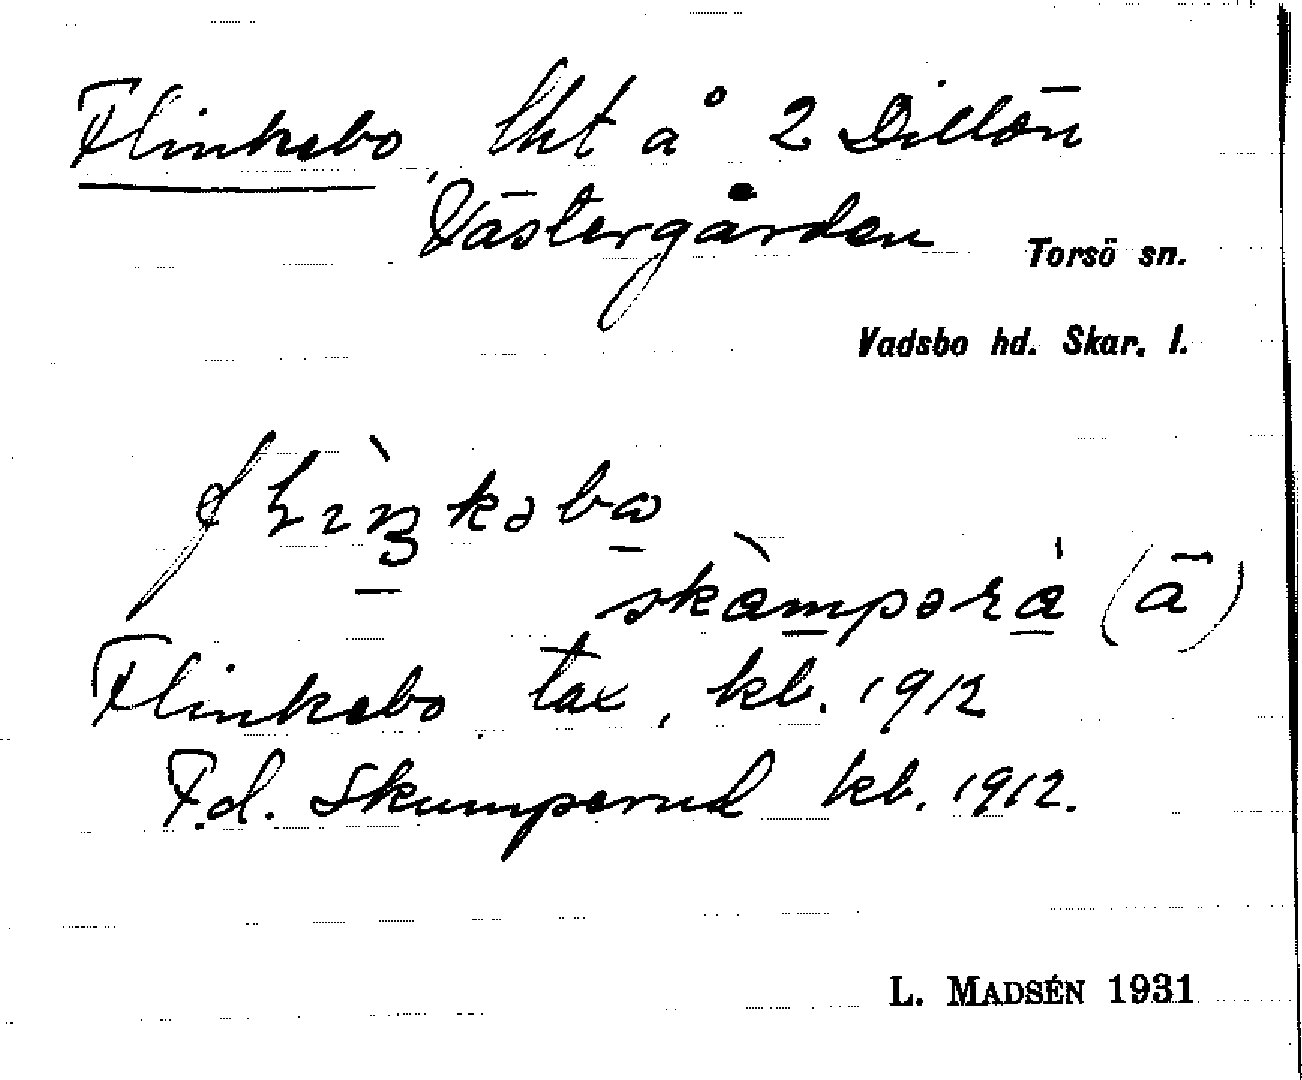 Flinkebo, lht å 2 Dillön
Västergården
Torsö sn.
Vadsbo hd. Skar. l.
Flinkebo tax, kb. 1912
F.d. Skumperud kb. 1912.
L. MADSÉN 1931